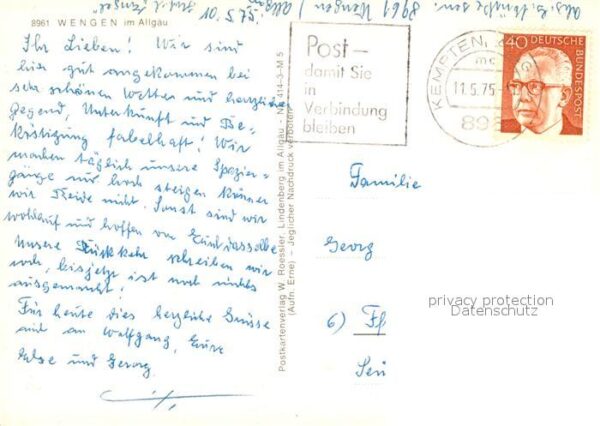 8961 WENGEN im Allgäu
10.5.75.
8961 Wengen /
Ihr Lieben! Wir sind
hier gut angekommen bei
sehr schönen Wetter und herrliche
Gegend, Unterkunft und Be-
köstigung fabelhaft! Wir
machen täglich unsere Spazier-
gänge nur hoch steigen können
wir beide nicht. Sonst sind wir
wohlauf und hoffen von Euch dasselbe
Unsere Rückkehr schreiben wir
noch, bis jetzt ist noch nichts
ausgemacht!
Für heute dies herzliche Grüsse
auch an Wolfgang, Eure
und Georg
Postkartenverlag W. Roessler, Lindenberg im Allgäu · Nr. 414-3-M 5
(Aufn. Erne) · Jeglicher Nachdruck verboten
Post –
damit Sie
in
Verbindung
bleiben
KEMPTEN
11.5.75
896
40 DEUTSCHE
BUNDESPOST
Familie
Georg
6) Ff
privacy protection
Datenschutz